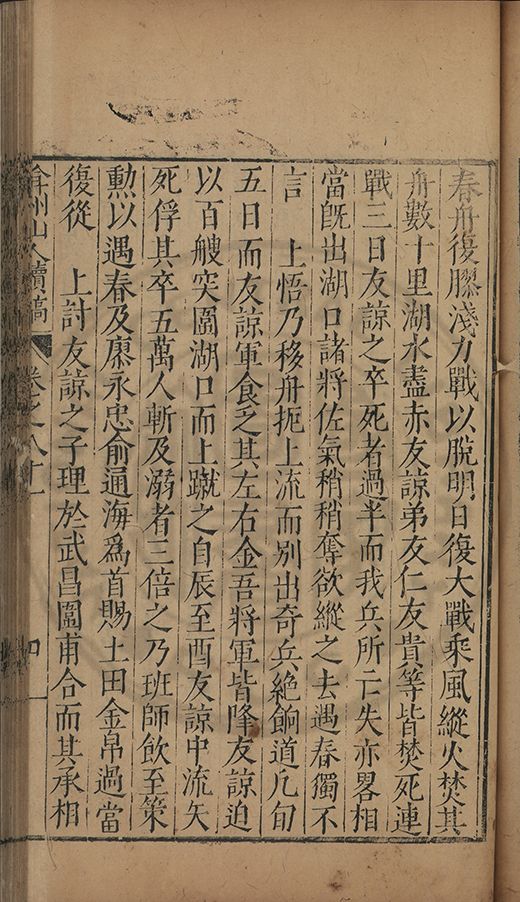 春舟復膠淺力戰以脫明日復大戰乘風縱火焚其
舟數十里湖水盡赤友諒弟友仁友貴等皆焚死連
戰三日友諒之卒死者過半而我兵所亡失亦畧相
當旣出湖口諸將佐氣稍稍奪欲縱之去遇春獨不
言　上悟乃移舟扼上流而別出奇兵絶餉道凡旬
五日而友諒軍食乏其左右金吾將軍皆降友諒迫
以百艘突圍湖口而上蹴之自辰至酉友諒中流矢
死俘其卒五萬人斬及溺者三倍之乃班師飲至策
勲以遇春及廖永忠俞通海爲首賜土田金帛過當
復從　上討友諒之子理於武昌圍甫合而其丞相
弇州山人續稿　卷之八十一　四